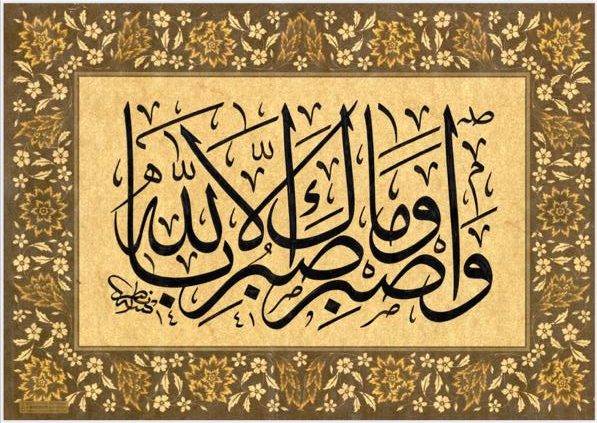 وَاصْبِرْ وَمَا صَبْرُكَ إِلَّا بِاللَّهِ